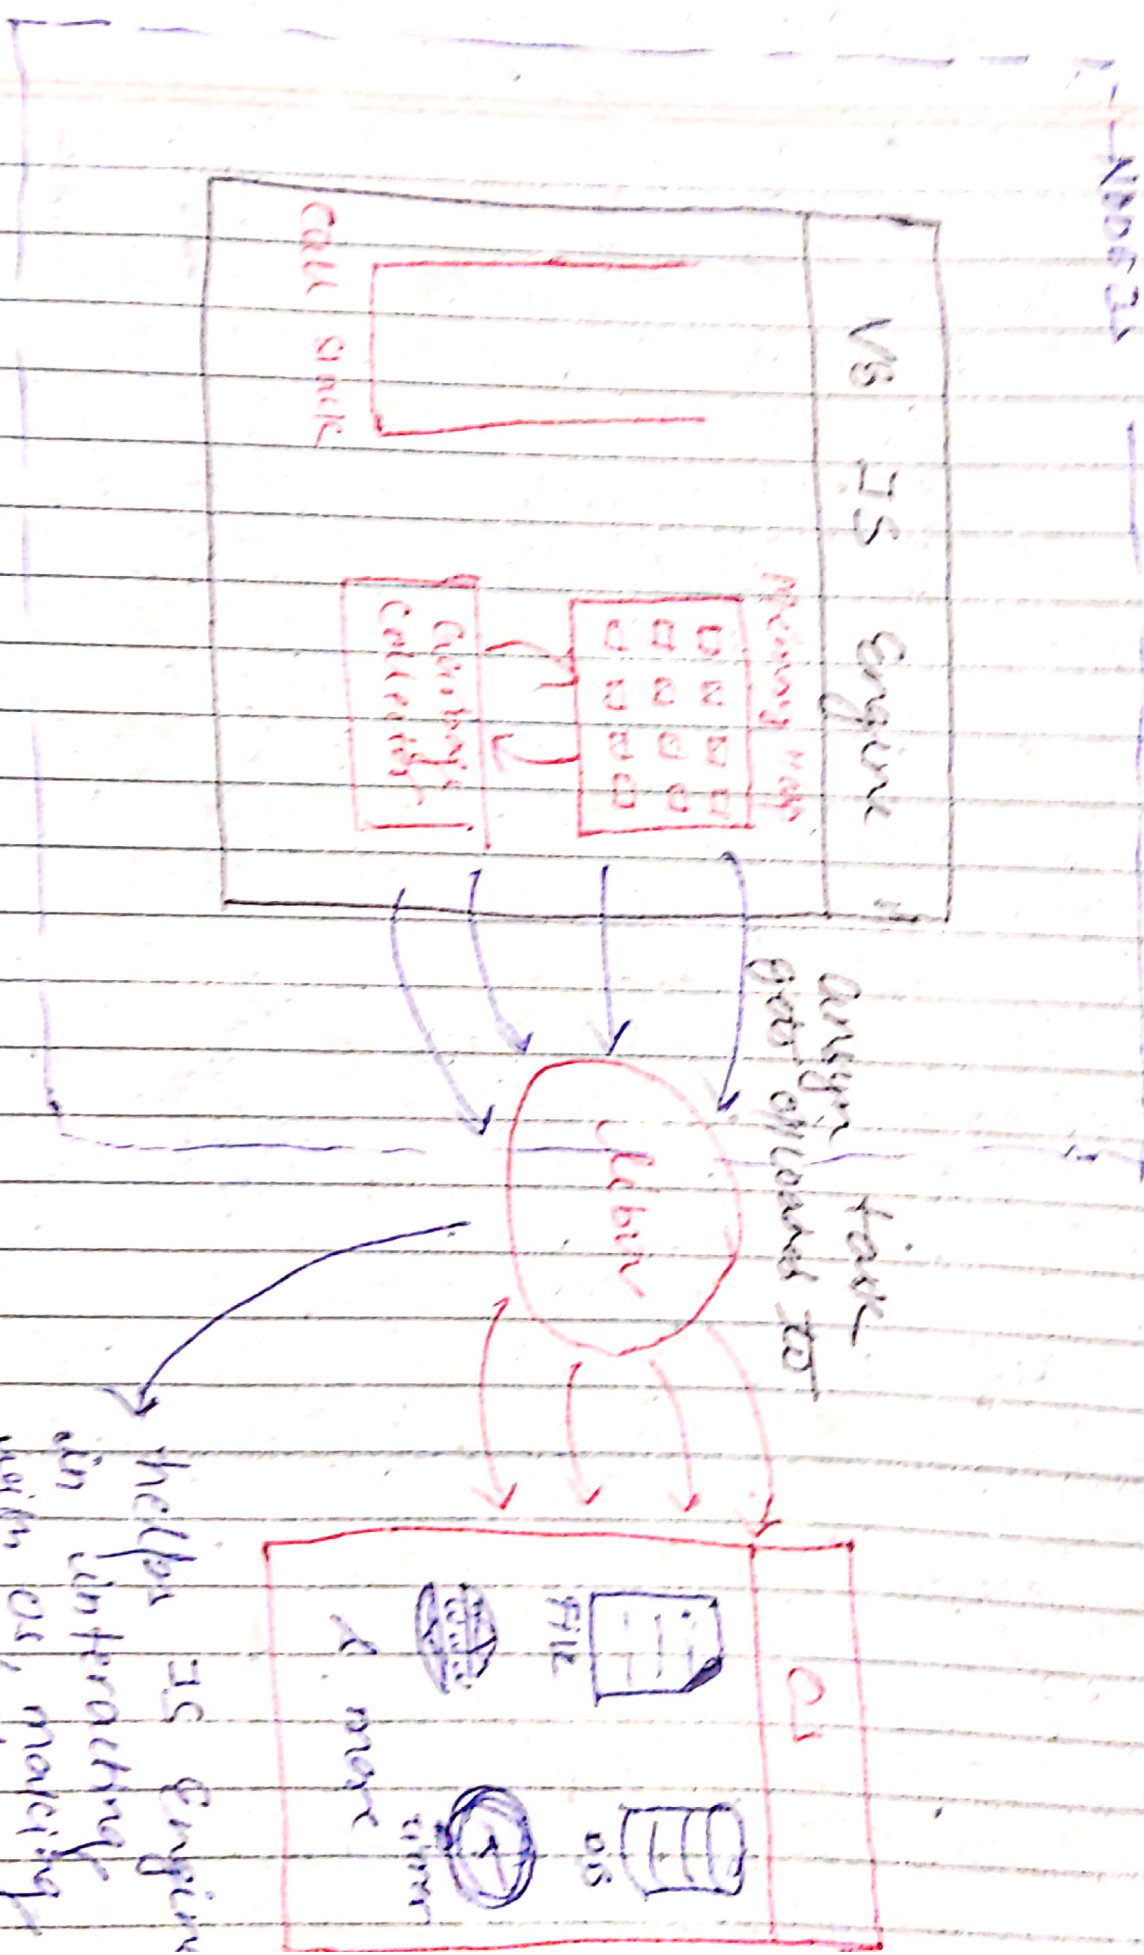 NODE JS
V8 JS Engine
Memory Heap
Call Stack
Garbage
Collector
async task
gets offload to
Libuv
OS
File
DB
Timer
& more
helps JS Engin
in intracting
with OS, making